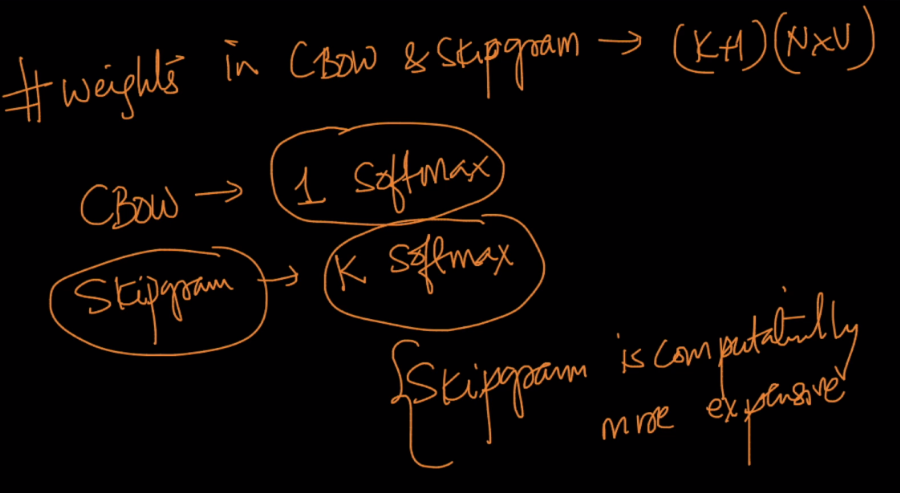 #weights in CBOW & Skipgram → (K+1)(N×V)
CBOW → 1 Softmax
Skipgram → K Softmax
Skipgram is computationally
more expensive